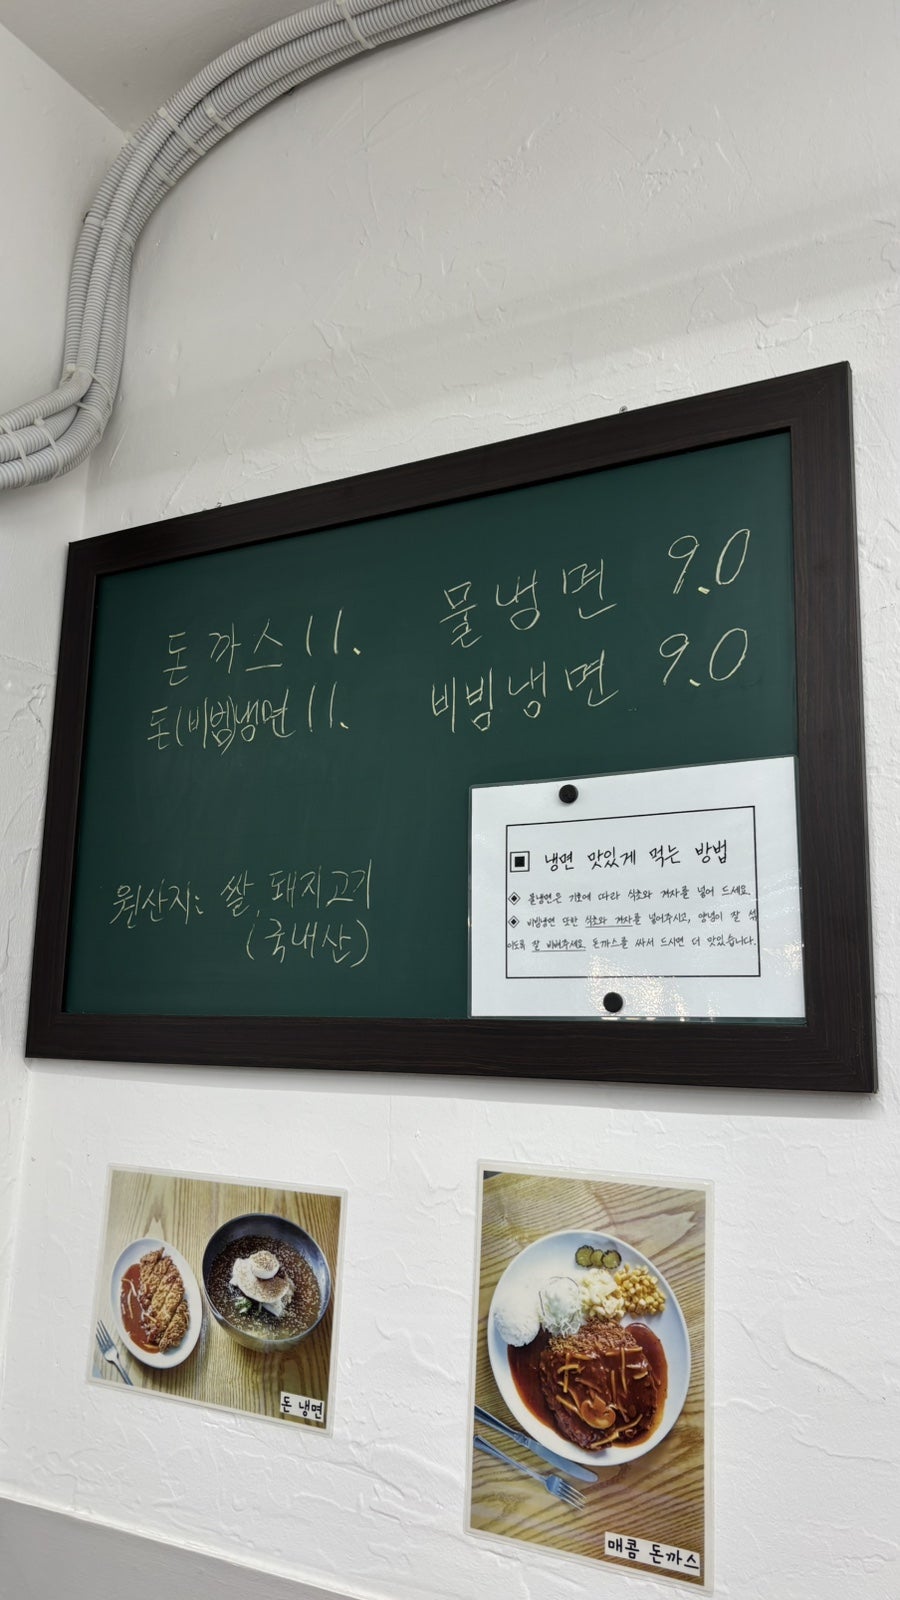 돈까스 11.
돈(비빔)냉면 11.
물냉면 9.0
비빔냉면 9.0
원산지: 쌀, 돼지고기
(국내산)
▣ 냉면 맛있게 먹는 방법
◈ 물냉면은 기호에 따라 식초와 겨자를 넣어 드세요.
◈ 비빔냉면 또한 식초와 겨자를 넣어주시고, 양념이 잘 섞
이도록 잘 비벼주세요. 돈까스를 싸서 드시면 더 맛있습니다.
돈 냉면
매콤 돈까스